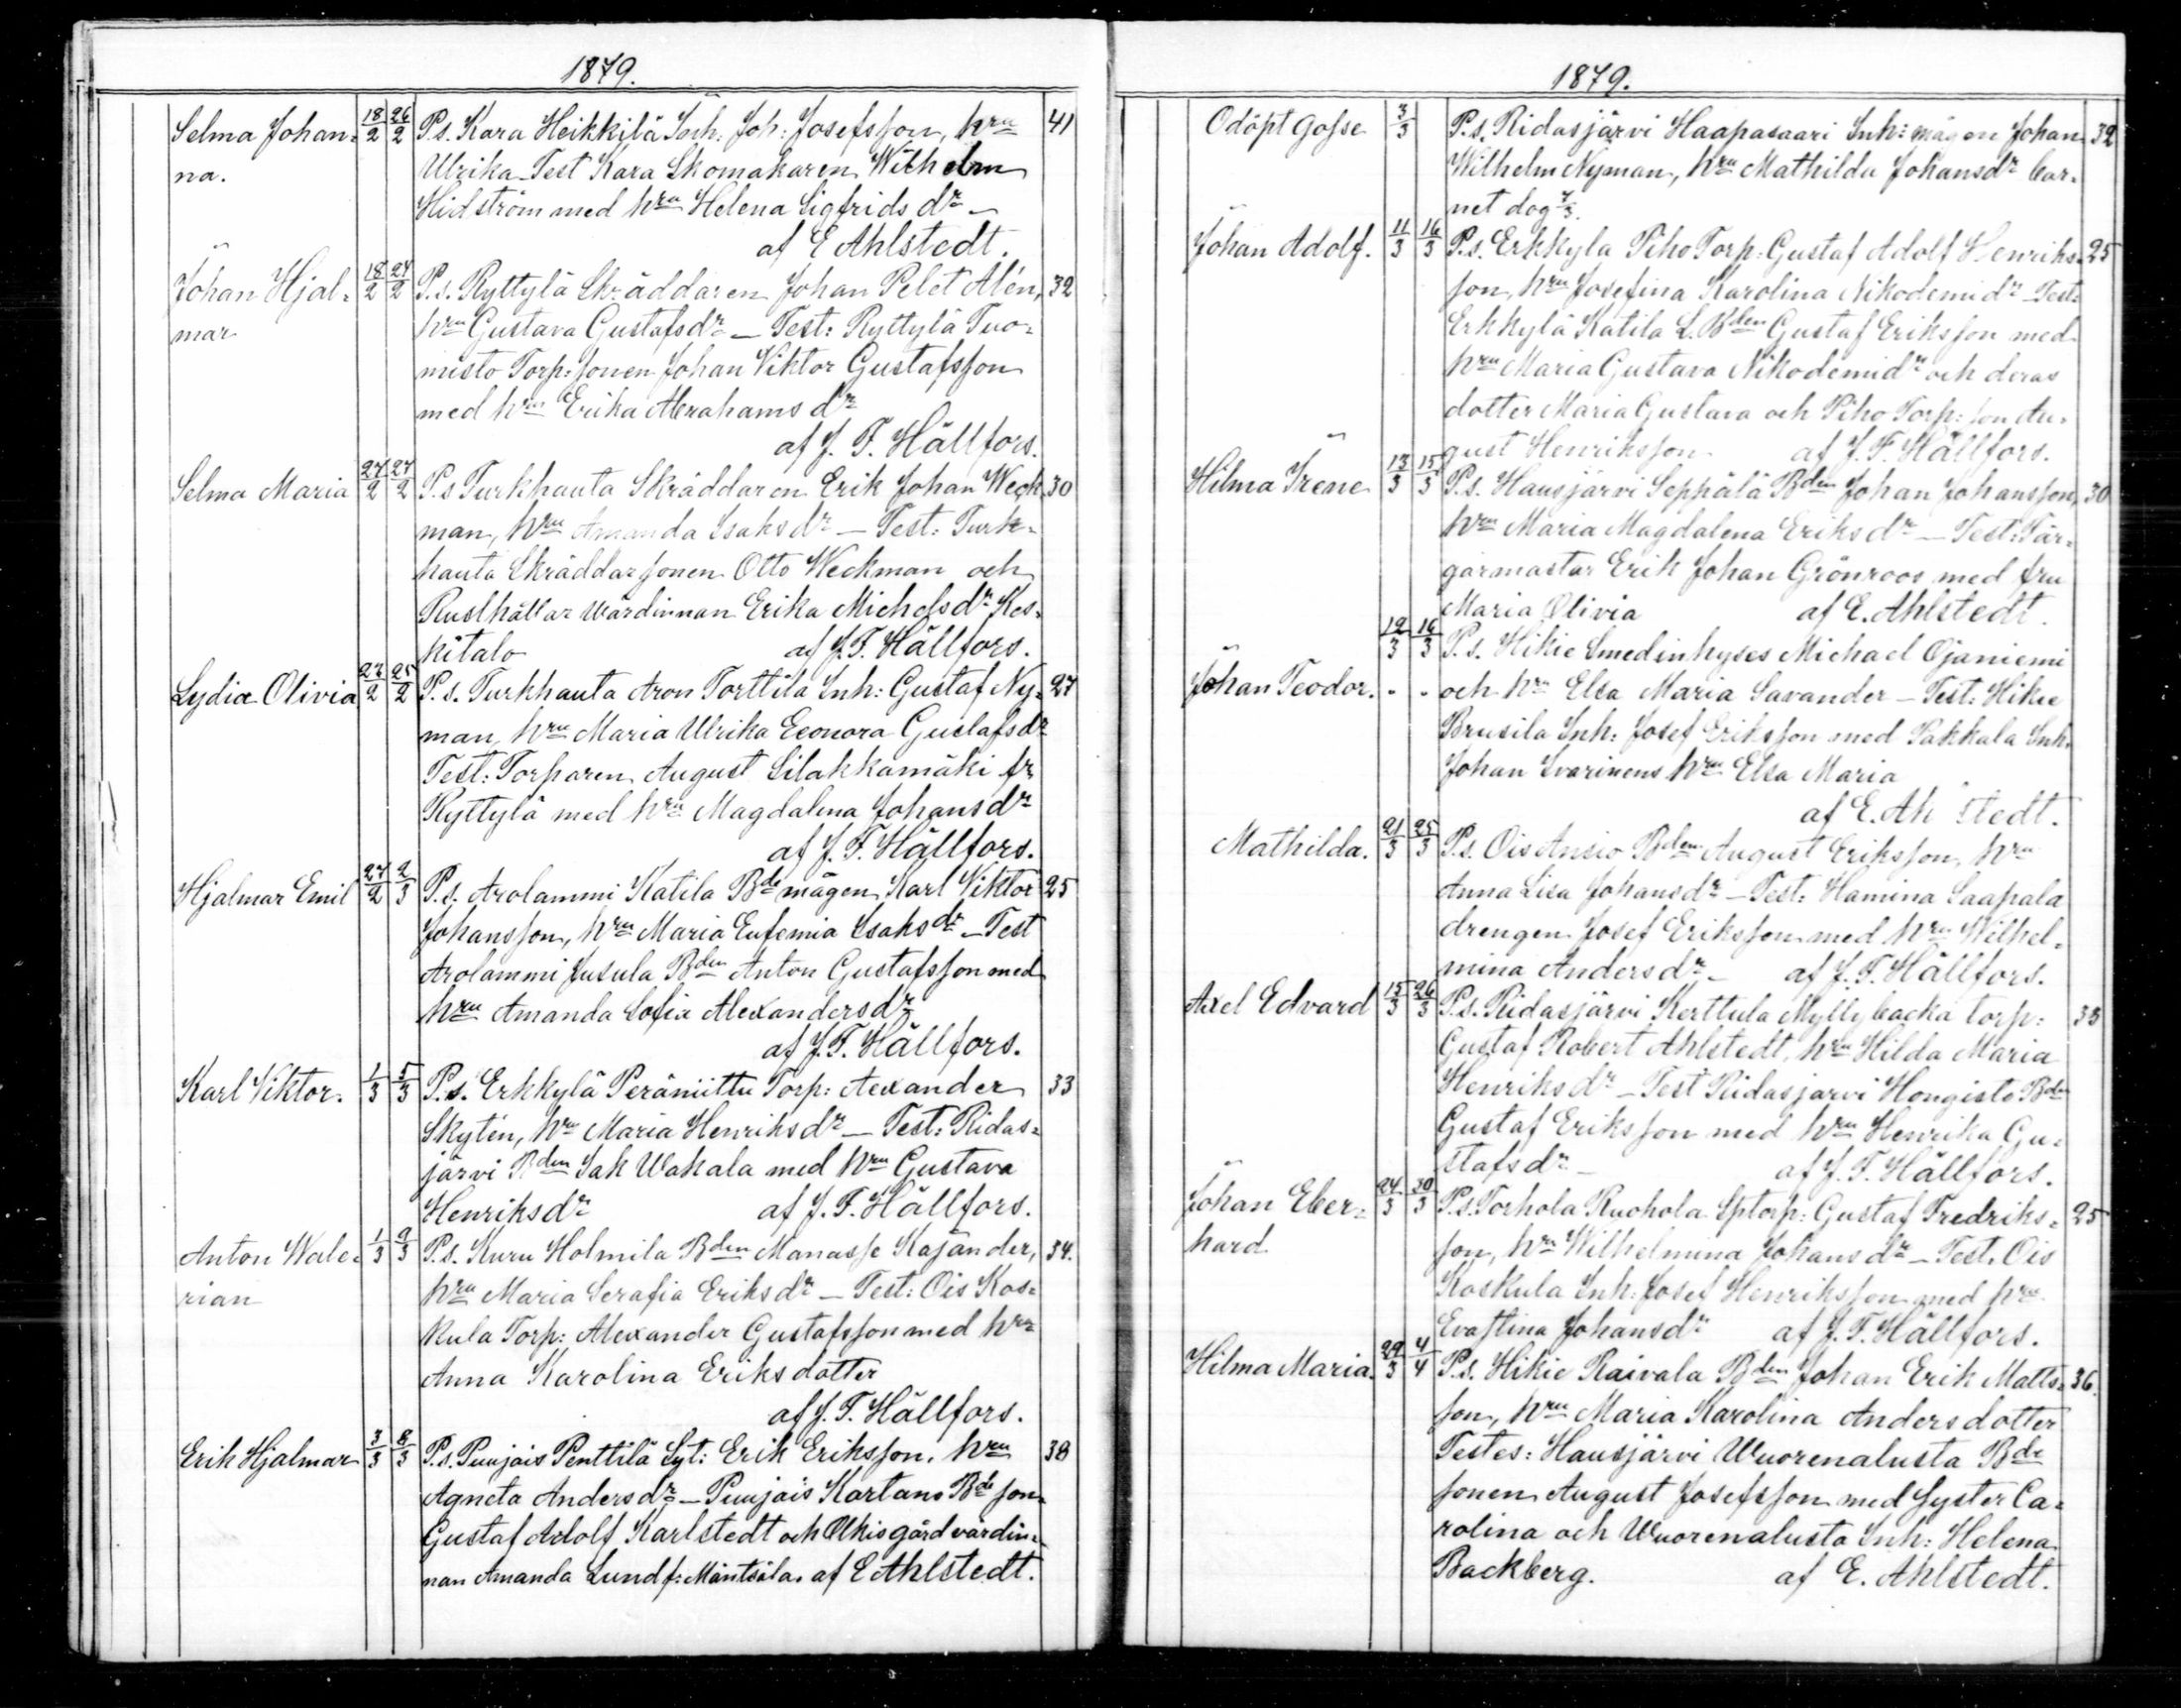 1879.
Selma Johan= 18/2 26/2 P.s. Kara Heikkilä Torp: Joh: Josefsson, hru 41
na. Ulrika Test Kara Skomakaren Wilhelm
Hidström med hru Helena Sigfridsdr –
af E Ahlstedt.
Johan Hjal= 18/2 27/2 P.s. Ryttylä Skräddaren Johan Pelet Alén, 32
mar hru Gustava Gustafsdr – Test: Ryttylä Tuo=
misto Torp: sonen Johan Viktor Gustafsson
med hru Erika Abrahamsdr
af J. F. Hällfors.
Selma Maria 27/2 27/2 P.s Turkhauta Skräddaren Erik Johan Weck 30
man, hru Amanda Isaksdr – Test: Turk=
hauta Skräddarsonen Otto Weckman och
Rusthållar wärdinnan Erika Michelsdr Kes=
kitalo af J. F. Hällfors.
Lydia Olivia 23/2 25/2 P.s. Turkhauta Aron Torttila Inh: Gustaf Ny= 27
man, hru Maria Ulrika Eeonora Gustafsdr
Test: Torparen August Silakkamäki fr.
Ryttylä med hru Magdalena Johansdr
af J. F. Hällfors.
Hjalmar Emil 27/2 2/3 P.s. Arolammi Katila Bde mågen Karl Viktor 25
Johansson, hru Maria Eufemia Isaksdr – Test
Arolammi Jusula Bden Anton Gustafsson med
hru Amanda Sofia Alexandersdr
af J. F. Hällfors.
Karl Viktor. 1/3 5/3 P.s. Erkkylä Peräniittu Torp: Aexander 33
Skytén, hru Maria Henriksdr – Test: Ridas=
järvi Bden Isak Wakala med hru Gustava
Henriksdr af J. F. Hällfors.
Anton Wale= 1/3 9/3 P.s. Kuru Holmila Bden Manasse Kajander, 34.
rian hru Maria Serafia Eriksdr – Test: Ois Kos=
kula Torp: Alexander Gustafsson med hru
Anna Karolina Eriksdotter
af J. F. Hällfors.
Erik Hjalmar 3/3 8/3 P.s. Puujais Penttilä Syt: Erik Eriksson, hru 38
Agneta Andersdr – Puujais Kartano Bde son
Gustaf Adolf Karlstedt och Olkis gård värdin=
nan Amanda Lund f: Mäntsälä. af E Ahlstedt.
1879.
Odöpt Gosse 3/3 P.s. Ridasjärvi Haapasaari Inh: mågen Johan 32
Wilhelm Nyman, hru Mathilda Johansdr bar=
net dog 7/3.
Johan Adolf. 11/3 16/3 P.s. Erkkyla Piho Torp: Gustaf Adolf Henriks= 25
son, hru Josefina Karolina Nikodemidr – Test:
Erkkylä Katila L. Bden Gustaf Eriksson med
hru Maria Gustava Nikodemidr och deras
dotter Maria Gustava och Piho Torp: son Au=
gust Henriksson af J. F. Hällfors.
Hilma Irene 13/3 15/3 P.s. Hausjärvi Seppälä Bden Johan Johansson, 30
hru Maria Magdalena Eriksdr – Test: Fär=
garmastar Erik Johan Grönroos med fru
Maria Olivia af E. Ahlstedt.
12/3 16/3 P.s. Hikie Smedinhyses Michael Ojaniemi
Johan Teodor. - - och hru Elsa Maria Savander – Test: Hikie
Brusila Inh: Josef Eriksson med Pakkala Inh:
Johan Ivarinens hru Elsa Maria
af E. Ah stedt.
Mathilda. 21/3 25/3 P.s. Ois Ansio Bden August Eriksson, hru
Anna Lisa Johansdr – Test: Hamina Saapala
drengen Josef Eriksson med hru Wilhel=
mina Andersdr – af J. F. Hällfors.
Axel Edvard 15/3 26/3 P.s. Ridasjärvi Kerttula Myllybacka torp: 33
Gustaf Robert Ahlstedt, hru Hilda Maria
Henriksdr – Test Ridasjarvi Hongisto Bden
Gustaf Eriksson med hru Henrika Gu=
stafsdr – af J. F. Hällfors.
Johan Eber= 24/3 30/3 P.s. Torhola Ruohola Sptorp: Gustaf Fredriks= 25
hard. son, hru Wilhelmina Johansdr – Test. Ois
Koskula Inh: Josef Henriksson med hru
Evastina Johansdr af J. F. Hällfors.
Hilma Maria. 29/3 4/4 P.s. Hikie Raivala Bden Johan Erik Matts= 36.
son, hru Maria Karolina Andersdotter
Testes: Hausjärvi Wuorenalusta Bde
sonen August Josefsson med syster Ca=
rolina och Wuorenalusta Inh: Helena
Backberg. af E. Ahlstedt.